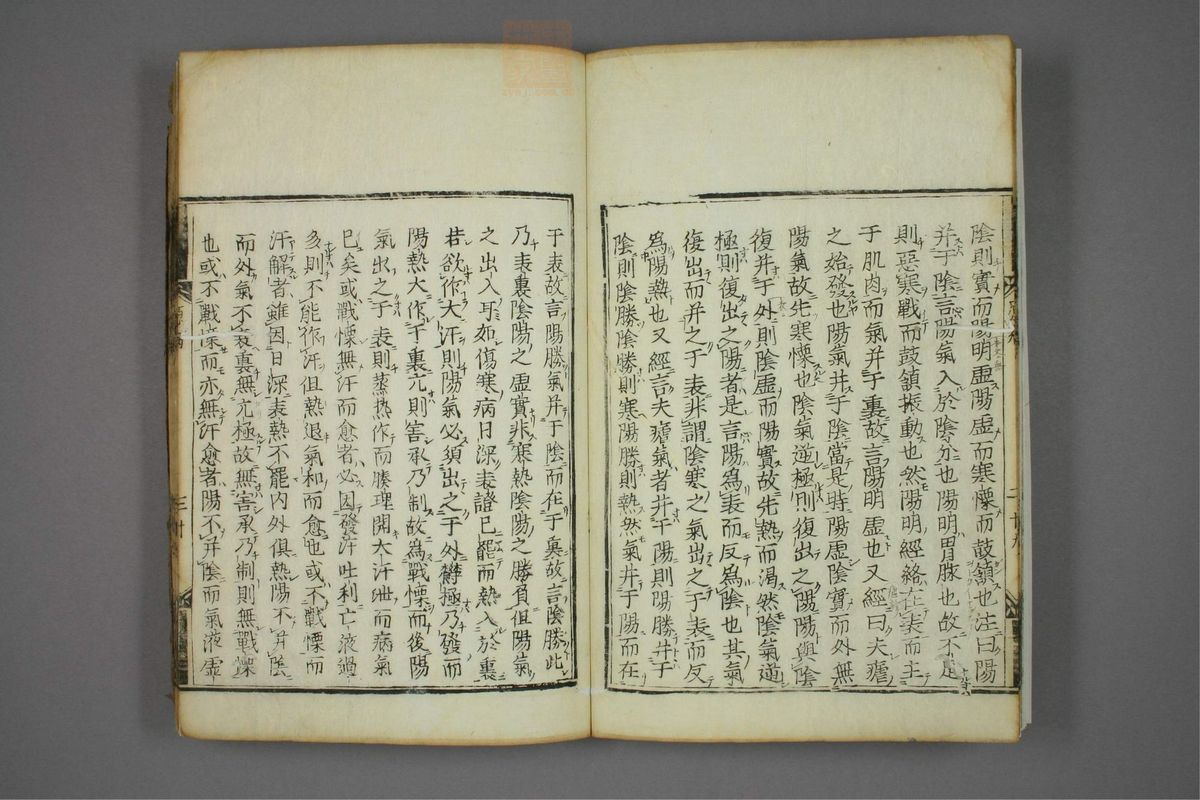 陰則實而陽明虛陽虛而寒慄而鼓頷也注曰陽
并于陰言陽氣入於陰分也陽明胃脉也故不足
則惡寒戰而鼓頷振動也然陽明經絡在表而主
于肌肉而氣并于裏故言陽明虛也又經曰夫瘧
之始發也陽氣并于陰當是時陽虛陰實而外無
陽氣故先寒慄也陰氣逆極則復出之陽陽與陰
復并于外則陰虛而陽實故先熱而渴然陰氣逆
極則復出之陽者是言陽為表而反為陰也其氣
復出而并之于表非謂陰寒之氣出之于表而反
為陽熱也又經言夫瘧氣者并于陽則陽勝并于
陰則陰勝陰勝則寒陽勝則熱然氣并于陽而在
于表故言陽勝氣并于陰而在于裏故言陰勝此
乃表裏陰陽之虛實非寒熱陰陽之勝負但陽氣
之出入耳如傷寒病日深表證已罷而熱入於裏
若欲作大汗則陽氣必須出之于外鬱極乃發而
陽熱大作于裏亢則害承乃制故為戰慄而後陽
氣出之于表則蒸熱作而腠理開大汗泄而病氣
已矣或戰慄無汗而愈者必因發汗吐利亡液過
多則不能作汗但熱退氣和而愈也或不戰慄而
汗解者雖因日深表熱不罷內外俱熱陽不并陰
而外氣不衰裏無亢極故無害承乃制則無戰慄
也或不戰慄而亦無汗愈者陽不并陰而氣液虛
二十九
三十